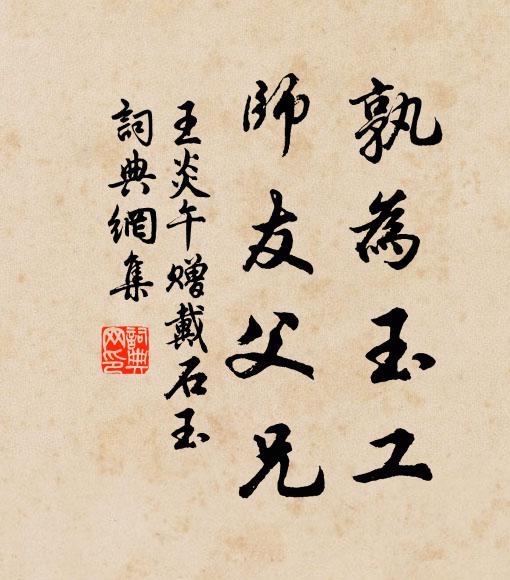 孰為玉工
師友父兄
王炎午贈戴石玉
詞典網集
詞典網印